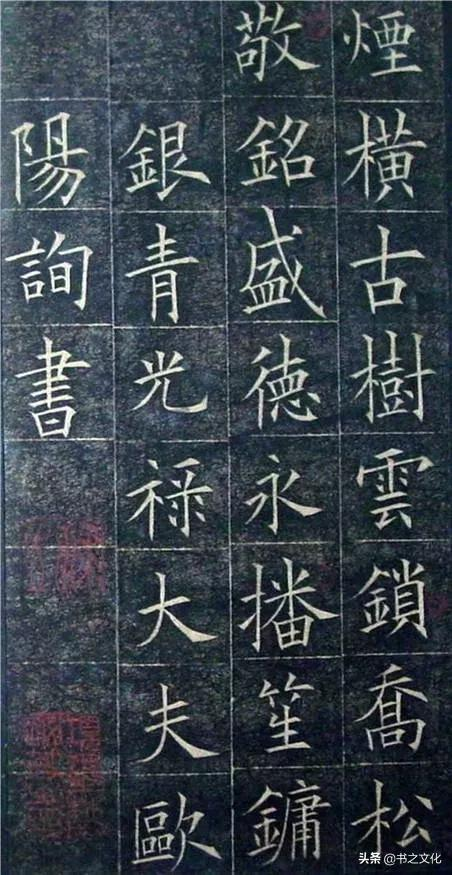 煙橫古樹雲鎖喬松
敬銘盛德永播笙鏞
銀青光祿大夫歐
陽詢書
头条 @书之文化